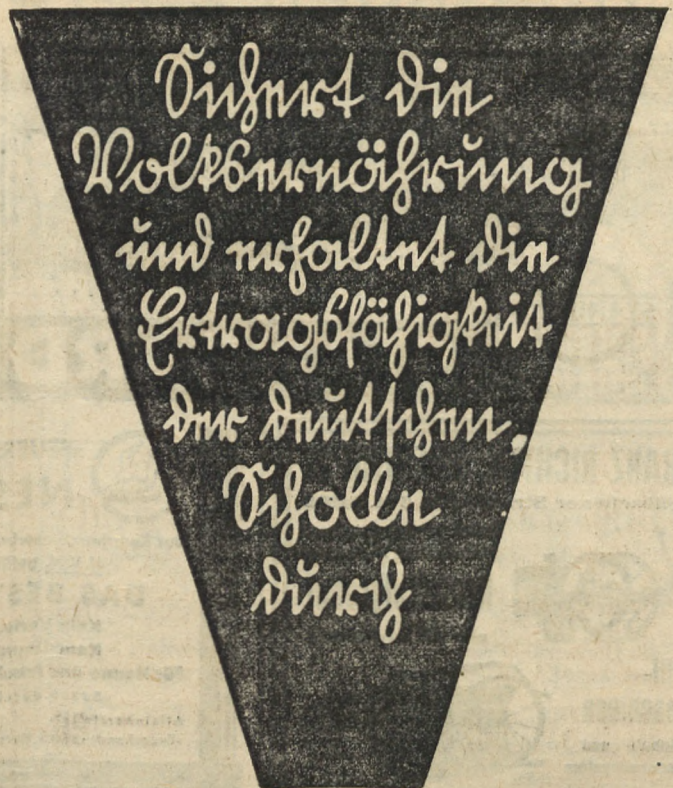 Sichert die
Volksernährung
und erhaltet die
Ertragsfähigkeit
der deutschen
Scholle
durch